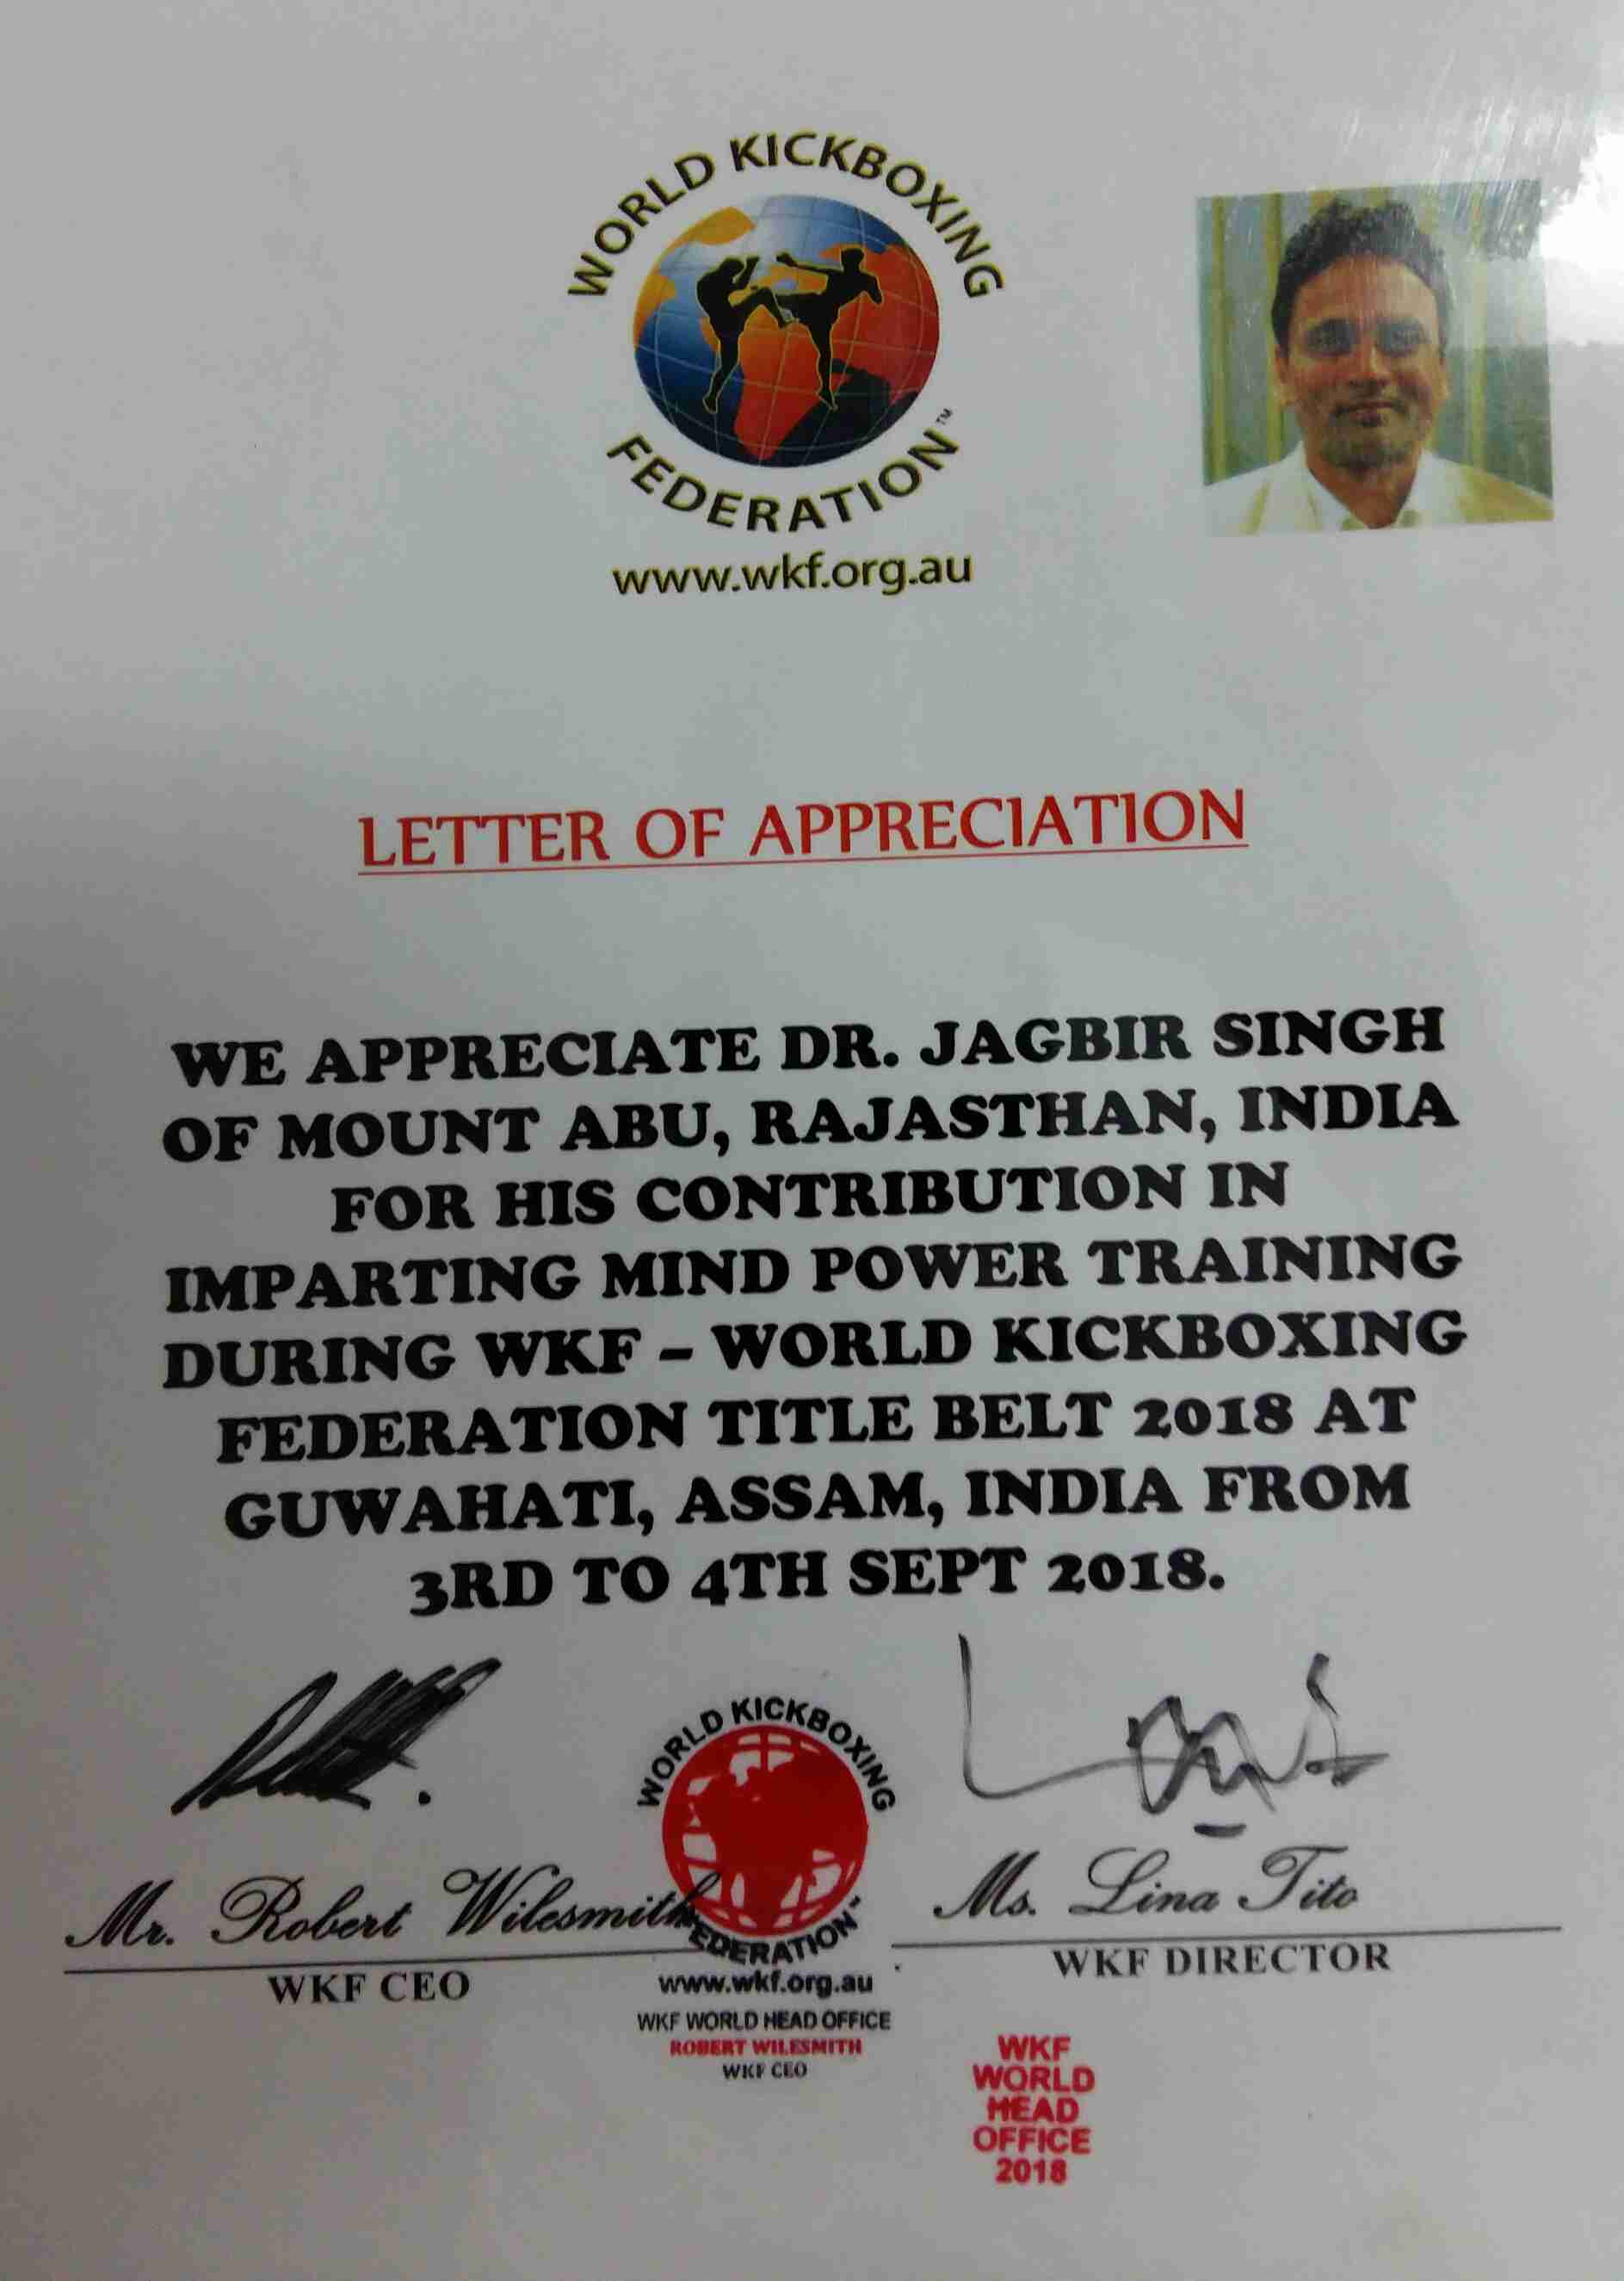 WORLD KICKBOXING
FEDERATION™
www.wkf.org.au
LETTER OF APPRECIATION
WE APPRECIATE DR. JAGBIR SINGH
OF MOUNT ABU, RAJASTHAN, INDIA
FOR HIS CONTRIBUTION IN
IMPARTING MIND POWER TRAINING
DURING WKF – WORLD KICKBOXING
FEDERATION TITLE BELT 2018 AT
GUWAHATI, ASSAM, INDIA FROM
3RD TO 4TH SEPT 2018.
Mr. Robert Wilesmith
WKF CEO
WORLD KICKBOXING
FEDERATION™
www.wkf.org.au
WKF WORLD HEAD OFFICE
ROBERT WILESMITH
WKF CEO
Ms. Lina Tito
WKF DIRECTOR
WKF
WORLD
HEAD
OFFICE
2018